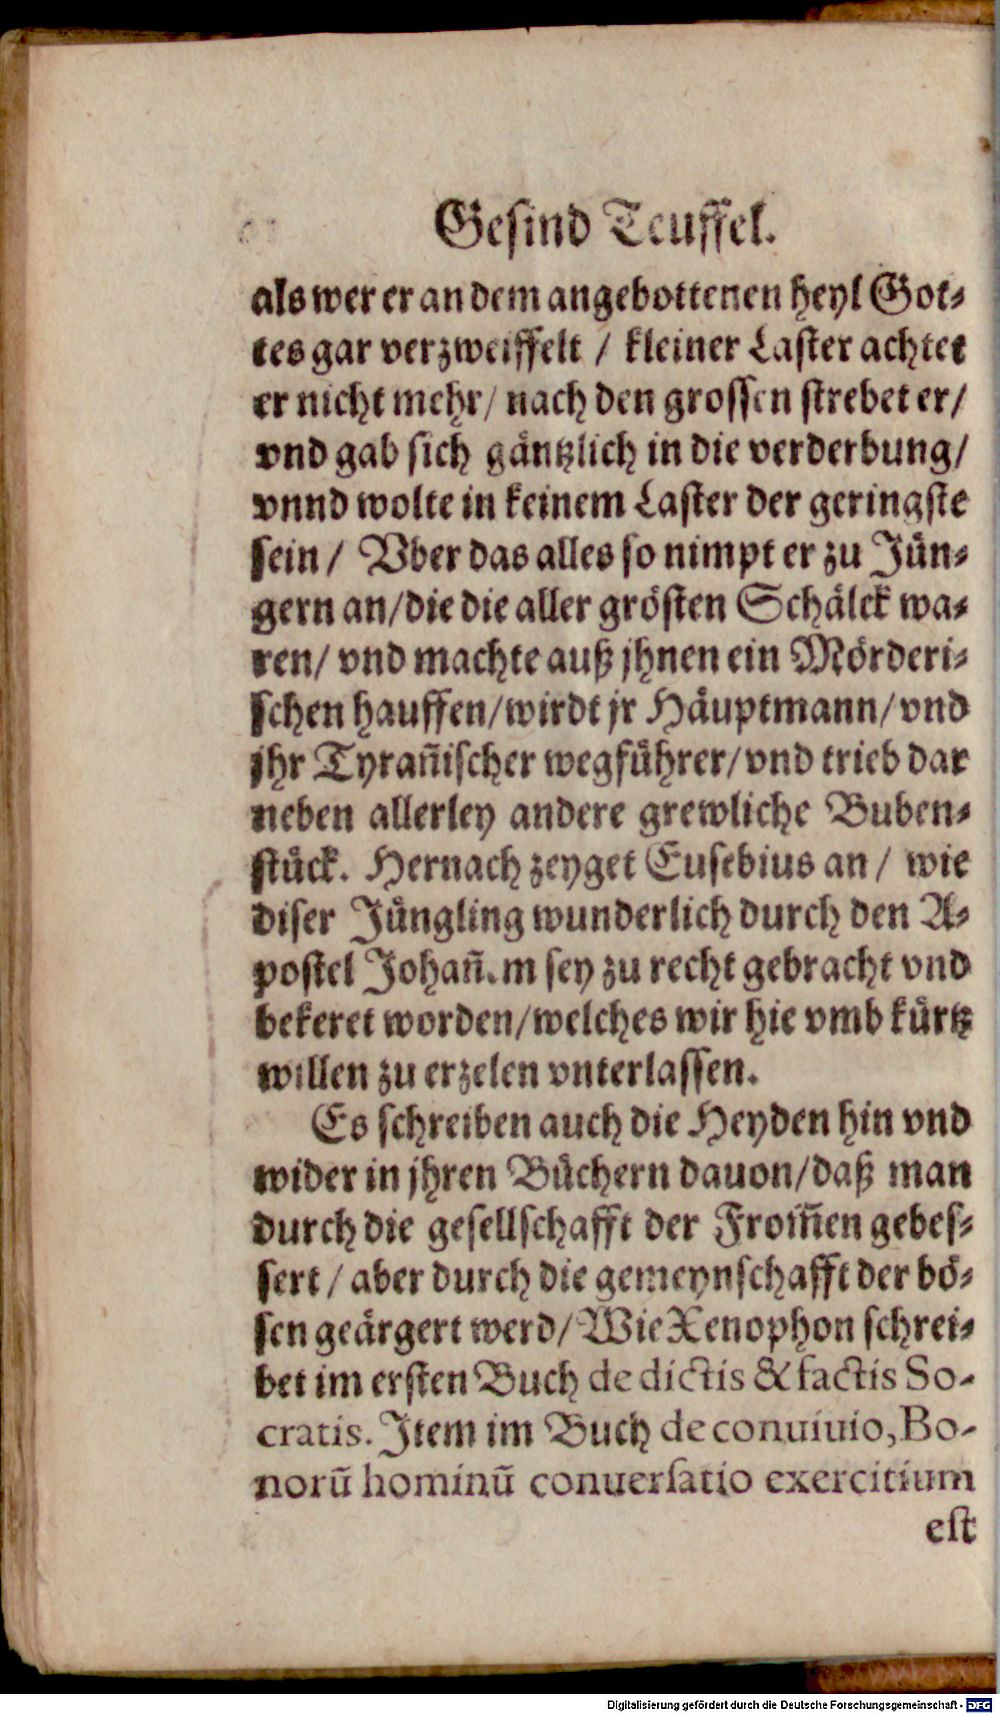 Gesind Teuffel.
als wer er an dem angebottenen heyl Got⸗
tes gar verzweiffelt / kleiner Laster achtet
er nicht mehr/ nach den grossen strebet er/
vnd gab sich gäntzlich in die verderbung/
vnnd wolte in keinem Laster der geringste
sein / Vber das alles so nimpt er zu Jün⸗
gern an/die die aller grösten Schälck wa⸗
ren/ vnd machte auß jhnen ein Mörderi⸗
schen hauffen/wirdt jr Häuptmann/vnd
jhr Tyrañischer wegführer/vnd trieb dar
neben allerley andere grewliche Buben⸗
stück. Hernach zeyget Eusebius an / wie
diser Jüngling wunderlich durch den A⸗
postel Johañem sey zu recht gebracht vnd
bekeret worden/welches wir hie vmb kürtz
willen zu erzelen vnterlassen.
Es schreiben auch die Heyden hin vnd
wider in jhren Büchern dauon/daß man
durch die gesellschafft der From̃en gebes⸗
sert / aber durch die gemeynschafft der bö⸗
sen geärgert werd/Wie Xenophon schrei⸗
bet im ersten Buch de dictis & factis So-
cratis. Jtem im Buch de conuiuio, Bo-
norũ hominũ conuersatio exercitium
est
Digitalisierung gefördert durch die Deutsche Forschungsgemeinschaft - DFG